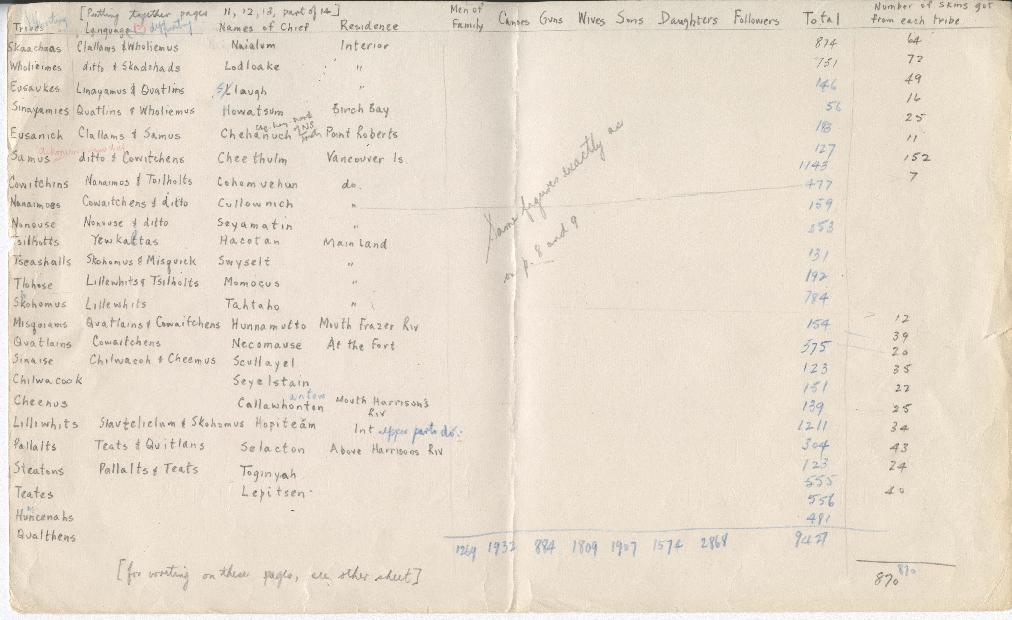 [Putting together pages 11, 12, 13, part of 14]
Tribes Language Names of Chief Residence Men of Family Canoes Guns Wives Sons Daughters Followers Total Number of skins got from each tribe
Skaachaas Clallams & Wholiemus Naialum Interior 874 64
Wholieimes ditto & Skadshads Lodloake " 751 72
Eusaukes Linayamus & Quatlins laugh " 146 49
Sinayamies Quatlins & Wholiemus Howatsum Birch Bay 56 16
Eusanich Clallams & Samus Chehanuch Point Roberts 183 25
Samus ditto & Cowitchens Cheethulm Vancouver Is. 127 11
1143 152
Cowitchins Nanaimos & Tsilholts Cohomuehun do. 477 7
Nanaimoes Cowaitchens & ditto Cullownich " 159
Nonouse Nonouse & ditto Seyamatin " 553
Tsilhotts Yewkaltas Hacotan Main land
Tseashalls Skohomus & Misquick Swyselt " 131
Tlohose Lillewhits & Tsilholts Momocus " 192
Skohomus Lillewhits Tahtaho " 784
Misquiams Quatlains & Cowaitchens Hunnamutto Mouth Frazer Riv 154 12
Quatlains Cowaitchens Necomause At the Fort 575 39
20
Sinaise Chilwacoh & Cheemus Scullayel 123 35
Chilwacook Seyelstain 151 22
Cheenus Callawhonton Mouth Harrison's Riv 139 25
Lilliwhits & Skohomus Hopiteám Int upper parts do. 1211 34
Pallalts Teats & Quitlans Selacton Above Harrisons Riv 304 43
Steatons Pallalts & Teats Toginyah 123 24
Teates Lepitsen 555 40
556
Huncenahs 481
Qualthens
1269 1932 884 1809 1907 1574 2868 9427
870 870
Same figures exactly as
on p. 8 and 9
[for writing on these pages, see other sheet]